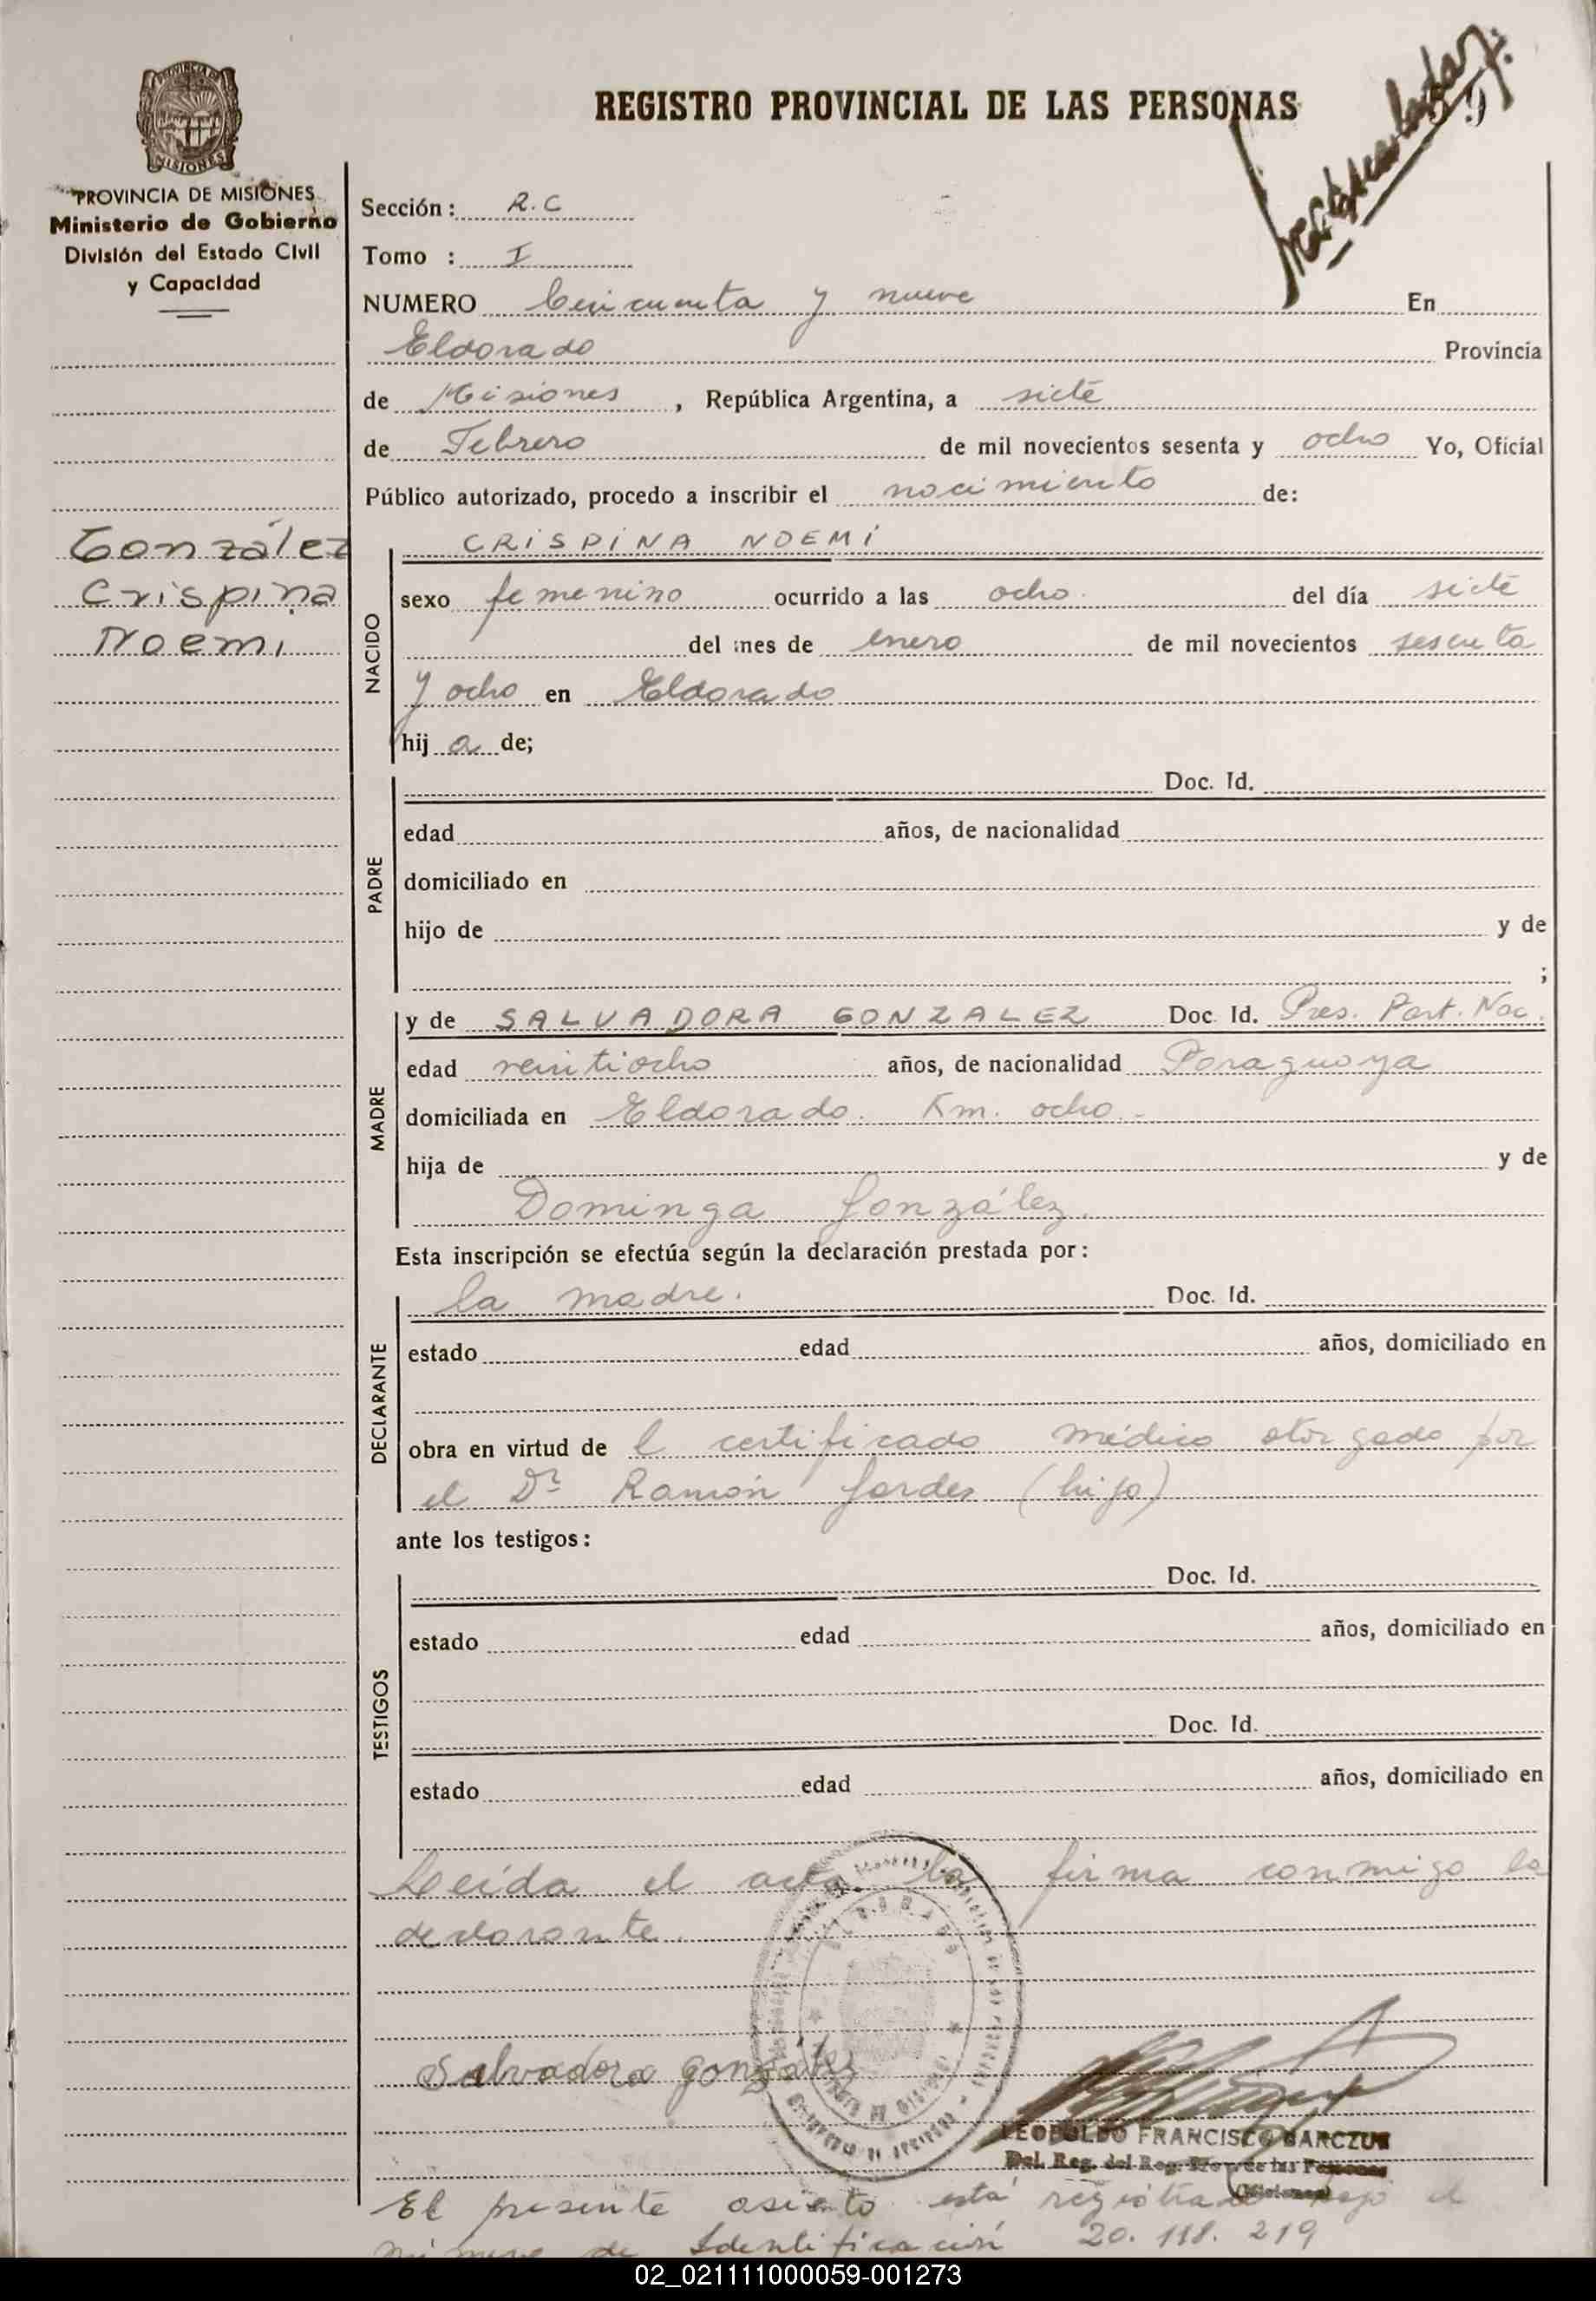 PROVINCIA DE MISIONES
PROVINCIA DE MISIONES
Ministerio de Gobierno
División del Estado Civil
y Capacidad
González
Crispina
Noemi
REGISTRO PROVINCIAL DE LAS PERSONAS
59
Sección: R.C
Tomo : I
NUMERO Cincuenta y nueve En
Eldorado Provincia
de Misiones, República Argentina, a siete
de Febrero de mil novecientos sesenta y ocho Yo, Oficial
Público autorizado, procedo a inscribir el nacimiento de:
NACIDO
CRISPINA NOEMI
sexo femenino ocurrido a las ocho. del día siete
del mes de enero de mil novecientos sesenta
y ocho en Eldorado
hij a de;
PADRE
Doc. Id.
edad años, de nacionalidad
domiciliado en
hijo de y de
;
MADRE
y de SALVADORA GONZALEZ Doc. Id. Pres. Part. Nac.
edad veintiocho años, de nacionalidad Paraguaya
domiciliada en Eldorado. Km. ocho.-
hija de y de
Dominga González.
Esta inscripción se efectúa según la declaración prestada por:
DECLARANTE
la madre. Doc. Id.
estado edad años, domiciliado en
obra en virtud de l certificado médico otorgado por
el Dr Ramón Gardes (hijo)
ante los testigos:
TESTIGOS
Doc. Id.
estado edad años, domiciliado en
Doc. Id.
estado edad años, domiciliado en
Leída el acta la firma conmigo la
declarante.
ELDORADO
Salvadora gonzález
LEOPOLDO FRANCISCO BARCZUK
Del. Reg. del Reg. Prov. de las Personas
(Misiones)
El presente asiento está registrado bajo el
número de Identificación 20.118.219
02_021111000059-001273